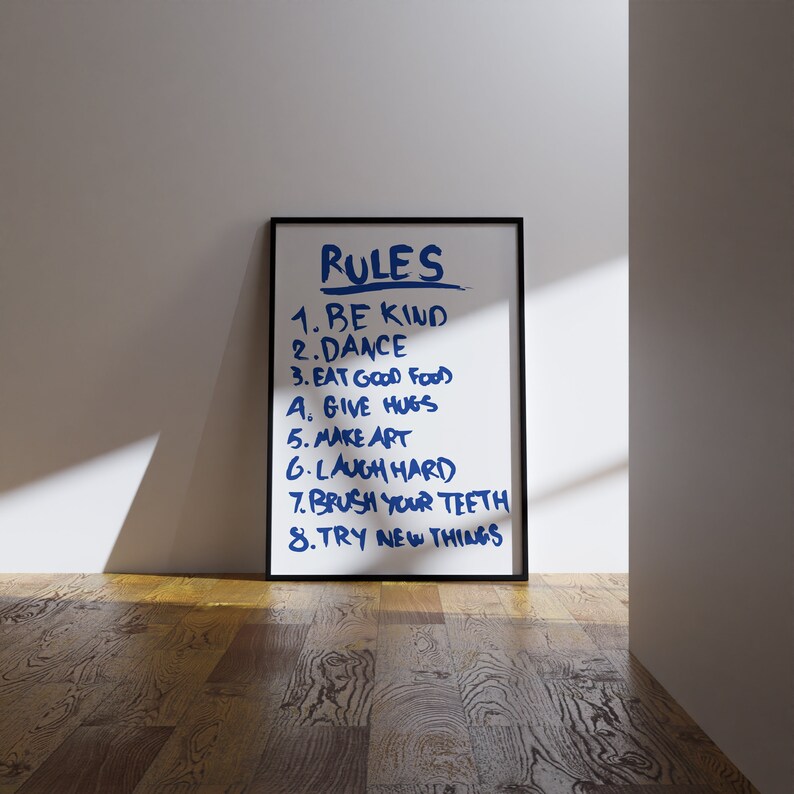 RULES
1. BE KIND
2. DANCE
3. EAT GOOD FOOD
4. GIVE HUGS
5. MAKE ART
6. LAUGH HARD
7. BRUSH YOUR TEETH
8. TRY NEW THINGS